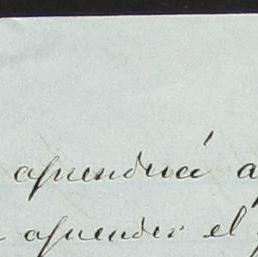 aprenderá a
aprender el